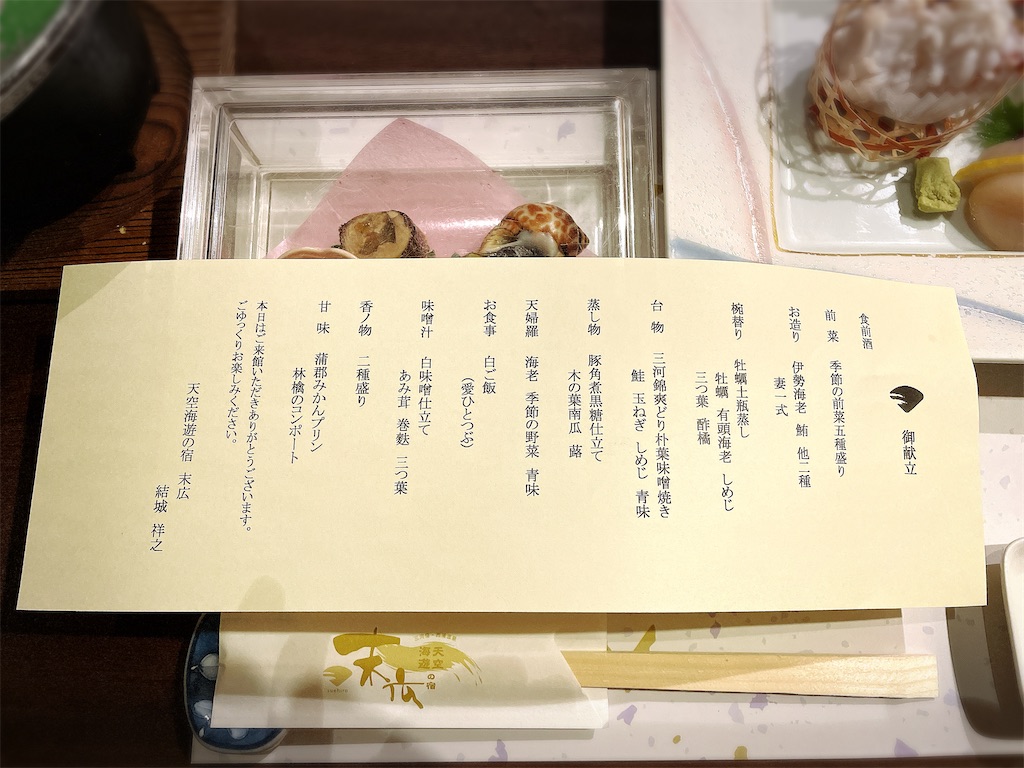 御献立
食前酒
前菜 季節の前菜五種盛り
お造り 伊勢海老 鮪 他二種
妻一式
椀替り 牡蠣土瓶蒸し
牡蠣 有頭海老 しめじ
三つ葉 酢橘
台物 三河錦爽どり朴葉味噌焼き
鮭 玉ねぎ しめじ 青味
蒸し物 豚角煮黒糖仕立て
木の葉南瓜 蕗
天婦羅 海老 季節の野菜 青味
お食事 白ご飯
(愛ひとつぶ)
味噌汁 白味噌仕立て
あみ茸 巻麩 三つ葉
香ノ物 二種盛り
甘味 蒲郡みかんプリン
林檎のコンポート
本日はご来館いただきありがとうございます。
ごゆっくりお楽しみください。
天空海遊の宿 末広
結城 祥之
天空
海遊の宿
末広